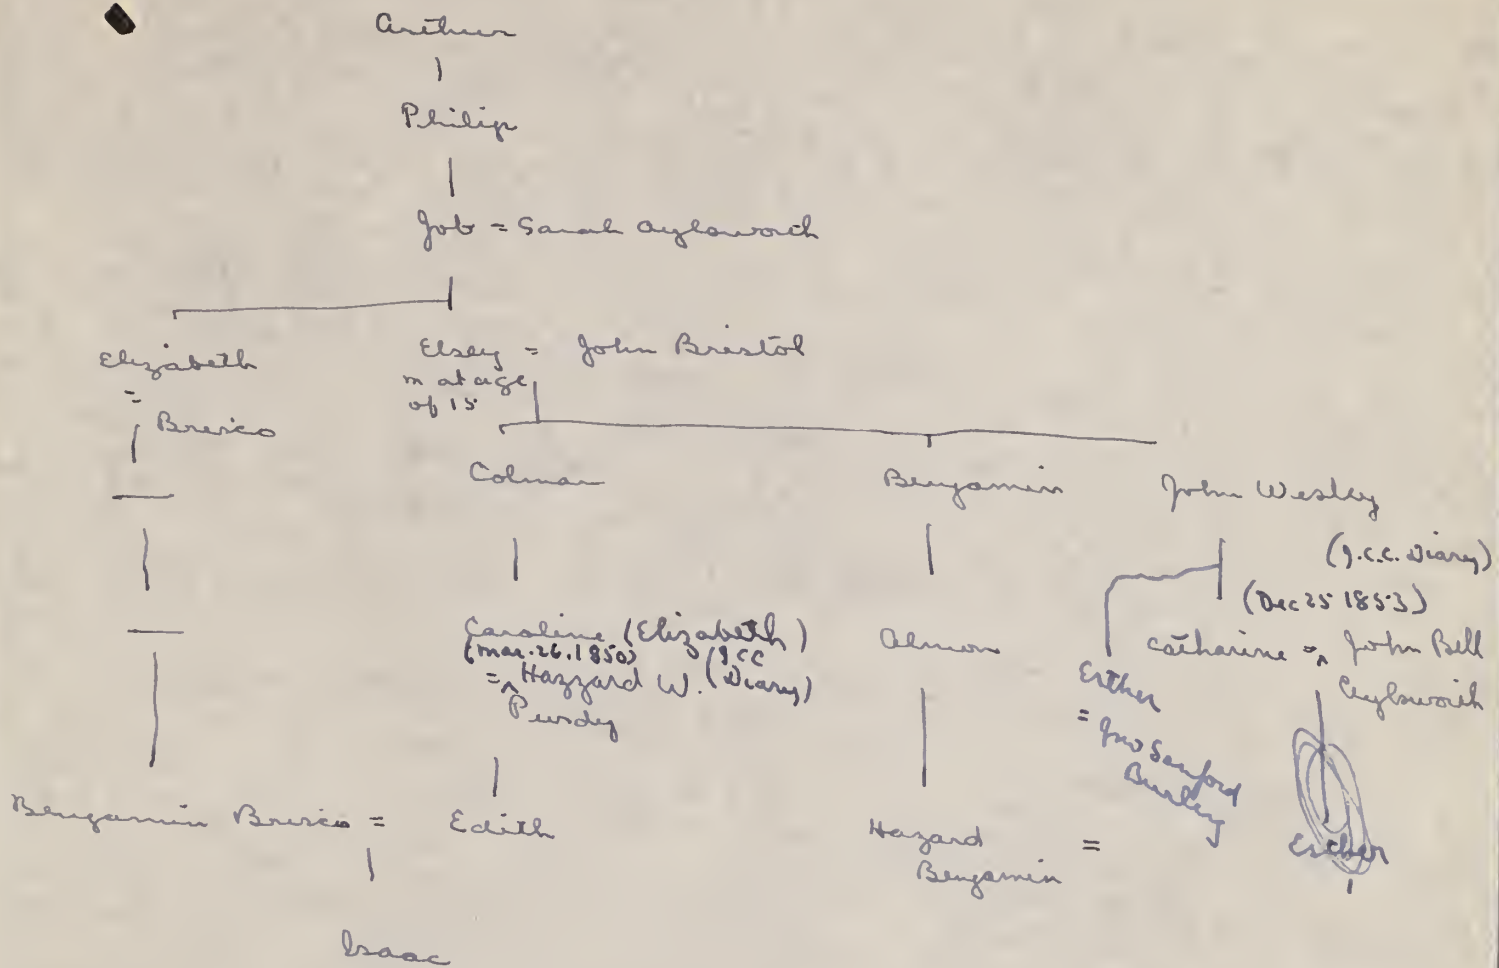 Arthur
Philip
Job = Sarah Aylsworth
Elizabeth
=
Brisco
Elsey = John Bristol
m at age
of 15
Colman
Benjamin
John Wesley
(J.C.C. Diary)
(Dec 25 1853)
Caroline (Elizabeth)
(Mar. 26. 1850) (JCC
=^ Hazzard W. Diary)
Purdy
Almon
Catharine =^ John Bell
Aylsworth
Esther
= Jno Sanford
Burley
Benjamin Brisco = Edith
Hazard =
Benjamin
Esther
Isaac